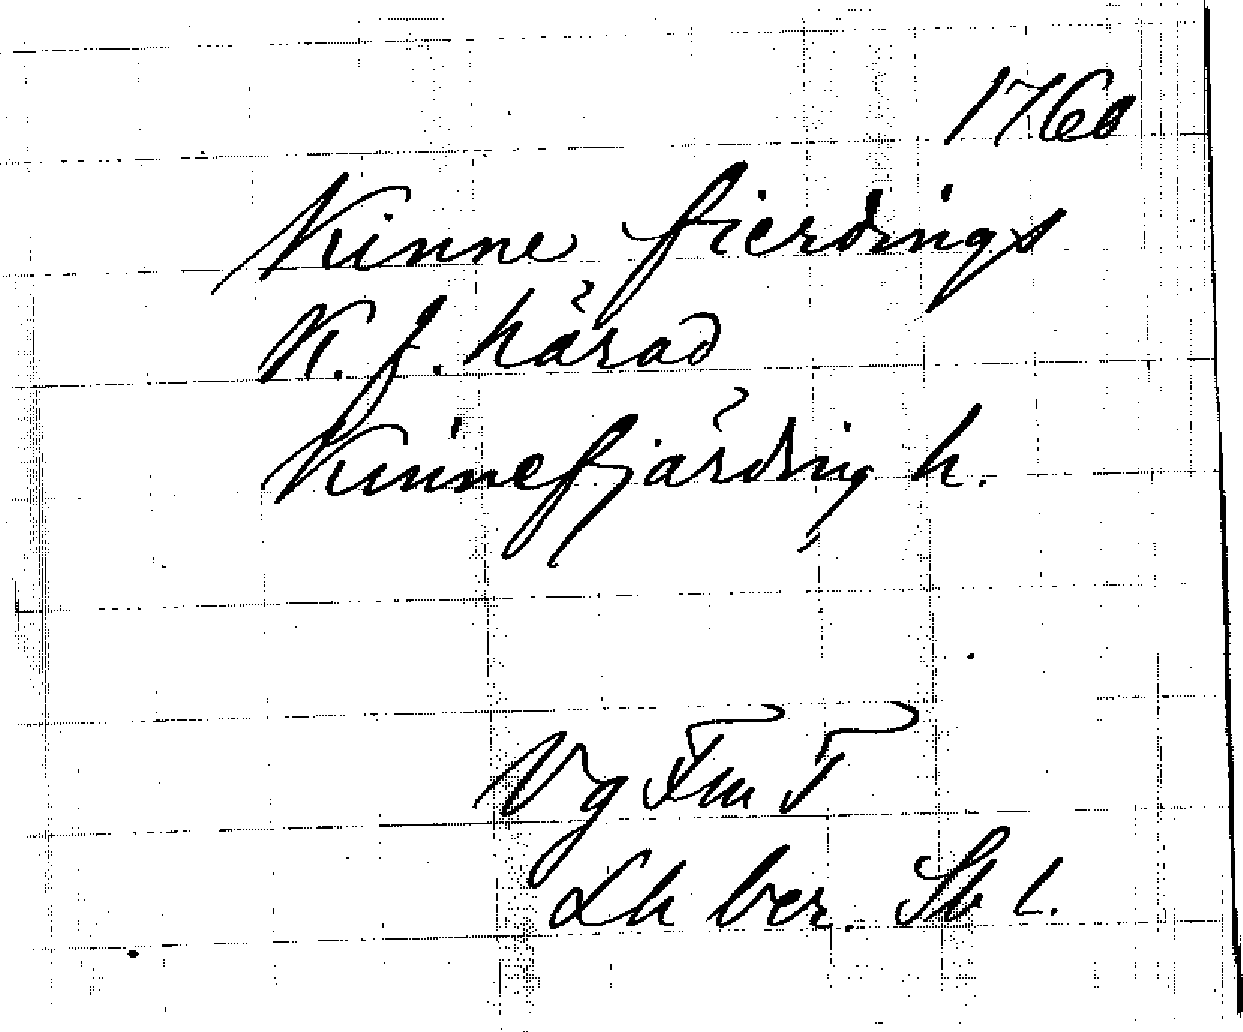 1760
Kinne fierdings
K. f. härad
Kinnefjärding h.
Vg Fm T
Lh ber. Sk l.